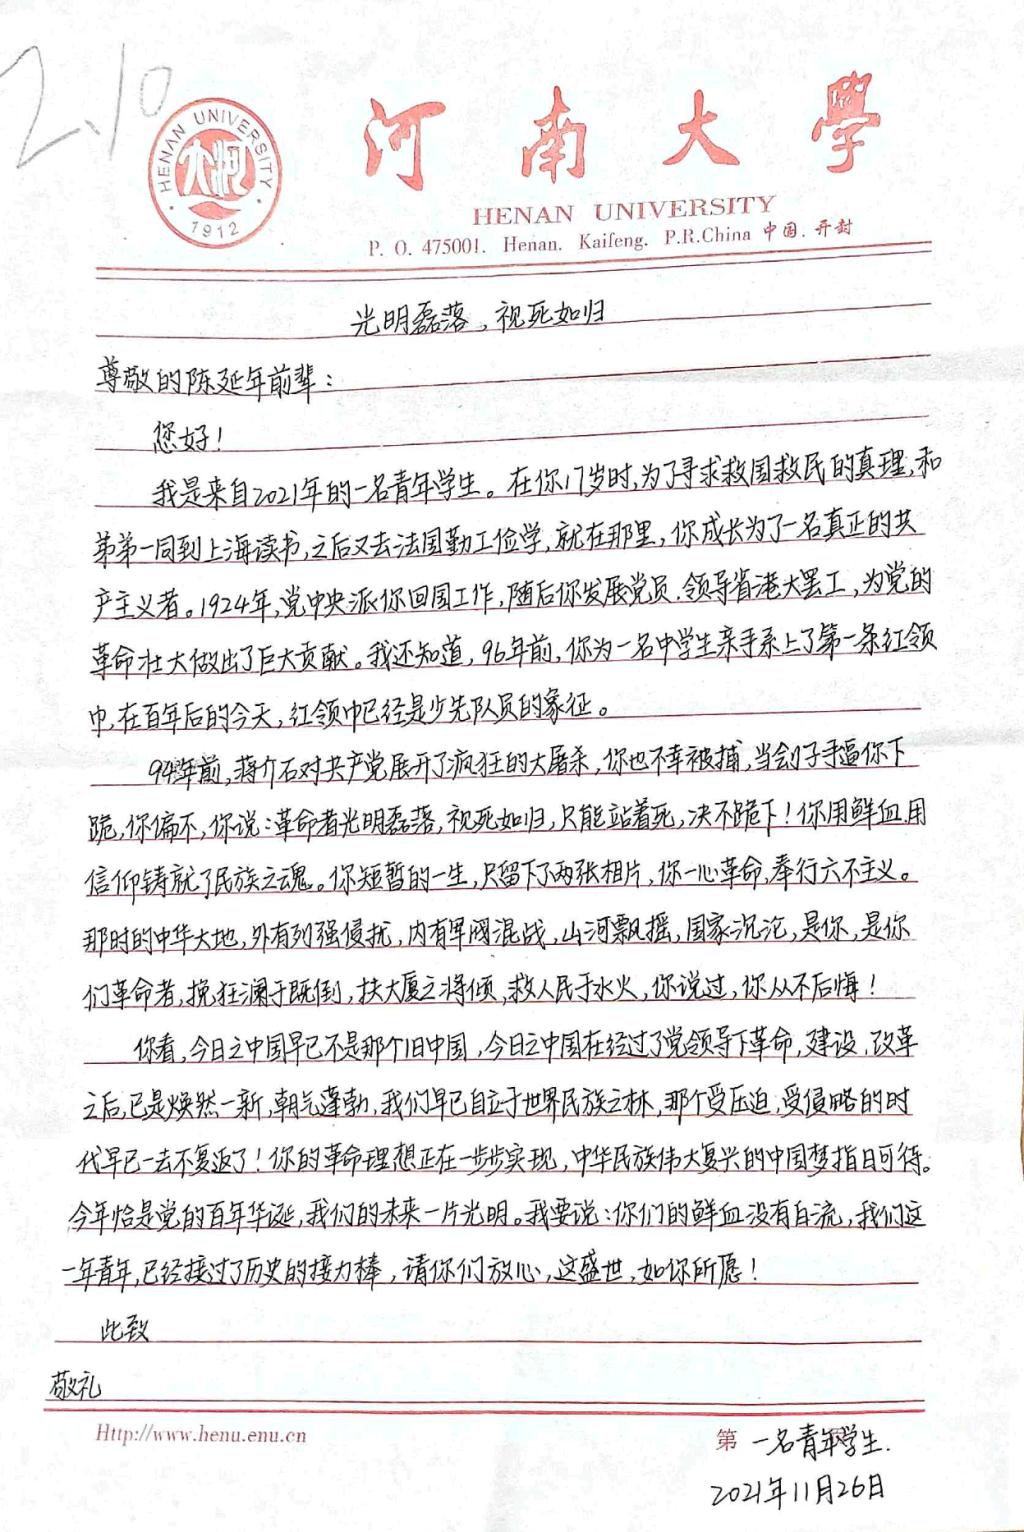 2.10
HENAN UNIVERSITY
大河
1912
河南大学
HENAN UNIVERSITY
P. O. 475001. Henan. Kaifeng. P.R.China 中国.开封
光明磊落、视死如归
尊敬的陈延年前辈：
您好！
我是来自2021年的一名青年学生。在你17岁时,为了寻求救国救民的真理,和
弟弟一同到上海读书,之后又去法国勤工俭学,就在那里,你成长为了一名真正的共
产主义者。1924年,党中央派你回国工作,随后你发展党员、领导省港大罢工,为党的
革命壮大做出了巨大贡献。我还知道,96年前,你为一名中学生亲手系上了第一条红领
巾,在百年后的今天,红领巾已经是少先队员的象征。
94年前,蒋介石对共产党展开了疯狂的大屠杀,你也不幸被捕,当刽子手逼你下
跪,你偏不,你说:革命者光明磊落,视死如归,只能站着死,决不跪下！你用鲜血、用
信仰铸就了民族之魂。你短暂的一生,只留下了两张相片,你一心革命,奉行六不主义。
那时的中华大地,外有列强侵扰,内有军阀混战,山河飘摇,国家沉沦,是你,是你
们革命者,挽狂澜于既倒,扶大厦之将倾,救人民于水火,你说过,你从不后悔！
你看,今日之中国早已不是那个旧中国,今日之中国在经过了党领导下革命,建设,改革
之后,已是焕然一新,朝气蓬勃,我们早已自立于世界民族之林,那个受压迫、受侵略的时
代早已一去不复返了！你的革命理想正在一步步实现,中华民族伟大复兴的中国梦指日可待。
今年恰是党的百年华诞,我们的未来一片光明。我要说:你们的鲜血没有白流,我们这
一年青年,已经接过了历史的接力棒,请你们放心,这盛世,如你所愿！
此致
敬礼
Http://www.henu.enu.cn
第 一名青年学生.
2021年11月26日